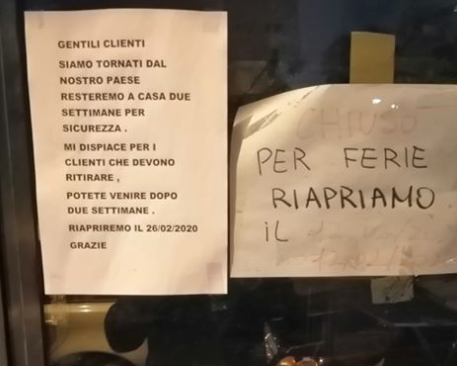 GENTILI CLIENTI
SIAMO TORNATI DAL
NOSTRO PAESE
RESTEREMO A CASA DUE
SETTIMANE PER
SICUREZZA .
MI DISPIACE PER I
CLIENTI CHE DEVONO
RITIRARE ,
POTETE VENIRE DOPO
DUE SETTIMANE .
RIAPRIREMO IL 26/02/2020
GRAZIE
CHIUSO
PER FERIE
RIAPRIAMO
iL